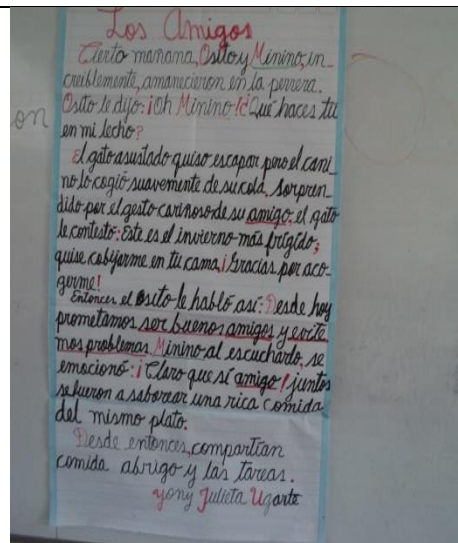 Los Amigos
Cierto manana, Osito y Minino, in_
creiblemente, amanecieron en la perrera.
Osito le dijo: ¡Oh Minino! ¿Qué haces tú
en mi lecho?
El gato asustado quiso escapar pero el cani_
no lo cogió suavemente de su cola. Sorpren_
dido por el gesto carinoso de su amigo; el gato
le contestó: Este es el invierno más frígido;
quise cobijarme en tu cama, ¡Gracias por aco_
germe!
Entonces el osito le habló así: Desde hoy
prometamos ser buenos amigos y evite_
mos problemas. Minino al escucharlo, se
emocionó: ¡Claro que sí amigo! juntos
se fueron a saborear una rica comida
del mismo plato.
Desde entonces, compartían
comida abrigo y las tareas.
yony Julieta Ugarte
on